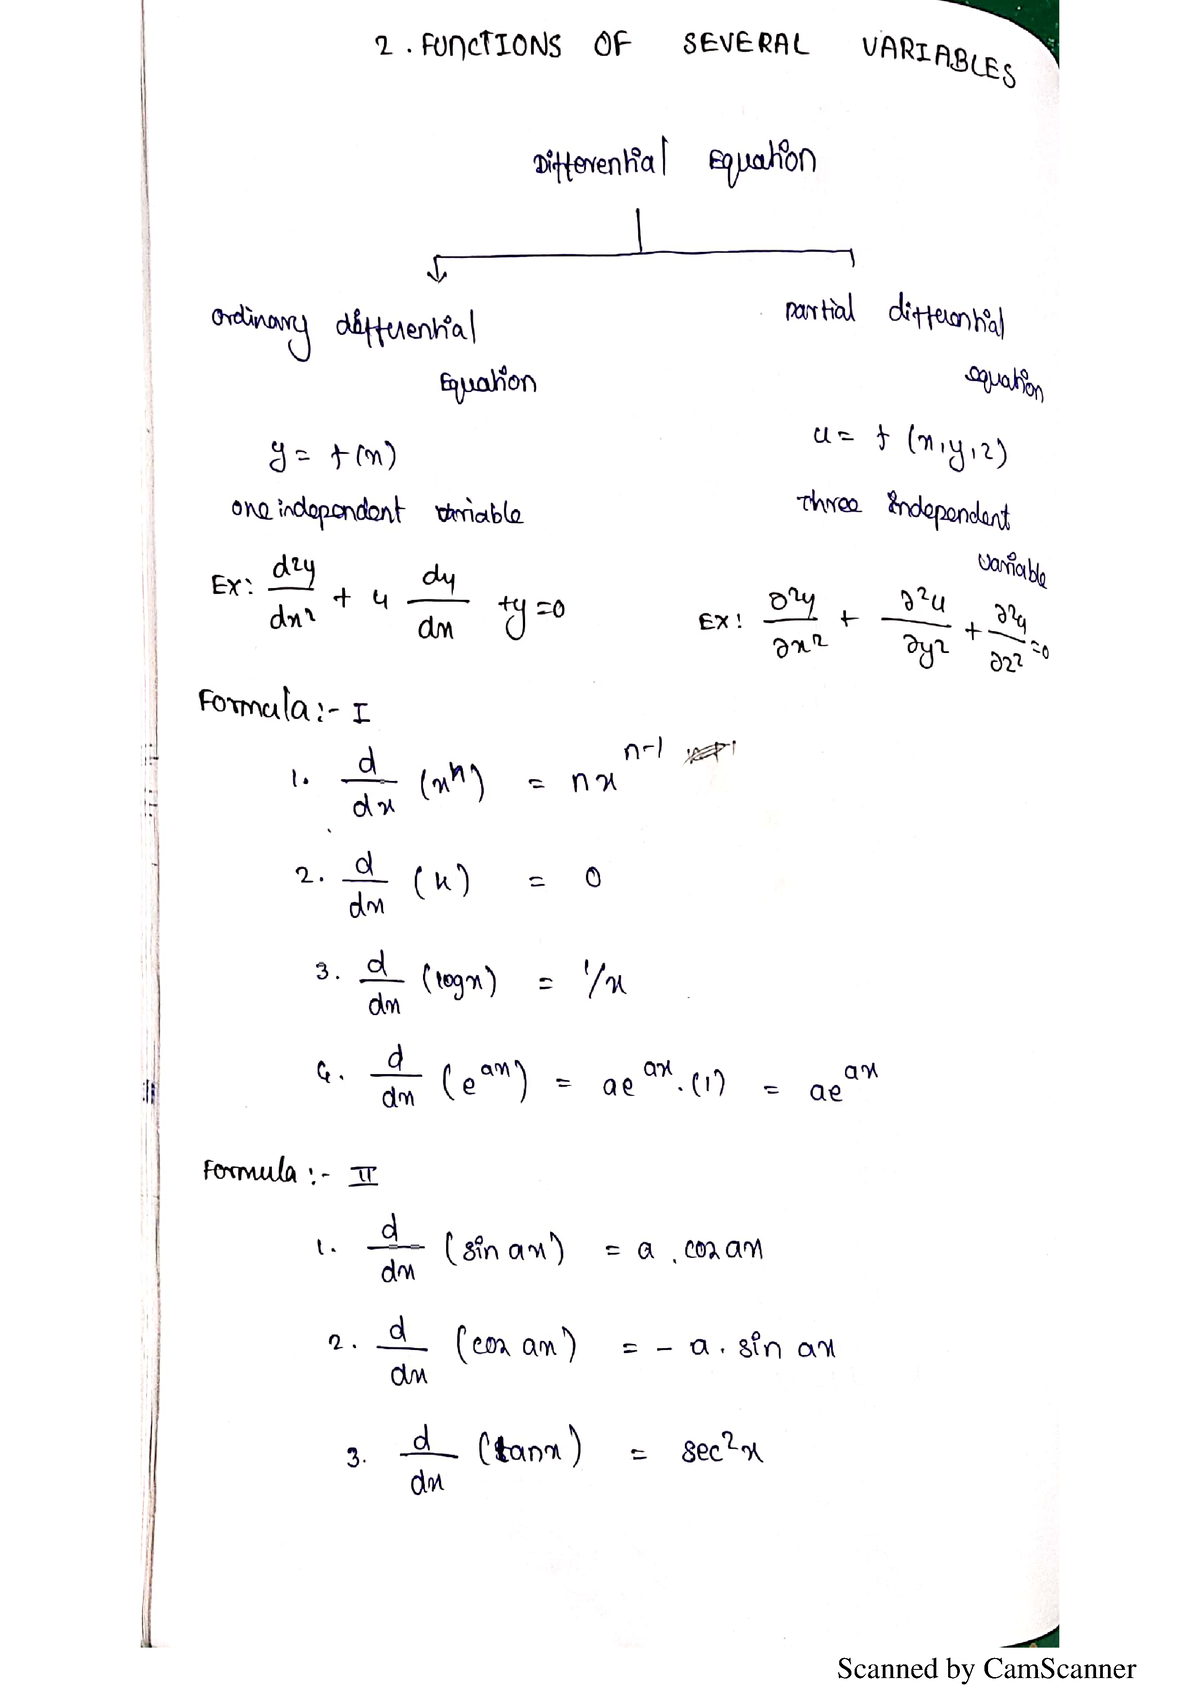 2. FUNCTIONS OF SEVERAL VARIABLES
Differential Equation
ordinary differential
Equation
partial differential
equation
y = f(x)
one independent variable
Ex: d²y/dx² + 4 dy/dx + y = 0
u = f (x,y,z)
three independent
variable
Ex: ∂²u/∂x² + ∂²u/∂y² + ∂²u/∂z² = 0
Formula :- I
1. d/dx (xⁿ) = nxⁿ⁻¹
2. d/dx (k) = 0
3. d/dx (logx) = 1/x
4. d/dx (e^ax) = ae^ax . (1) = ae^ax
Formula :- II
1. d/dx (sin ax) = a . cos ax
2. d/dx (cos ax) = - a . sin ax
3. d/dx (tanx) = sec²x
Scanned by CamScanner